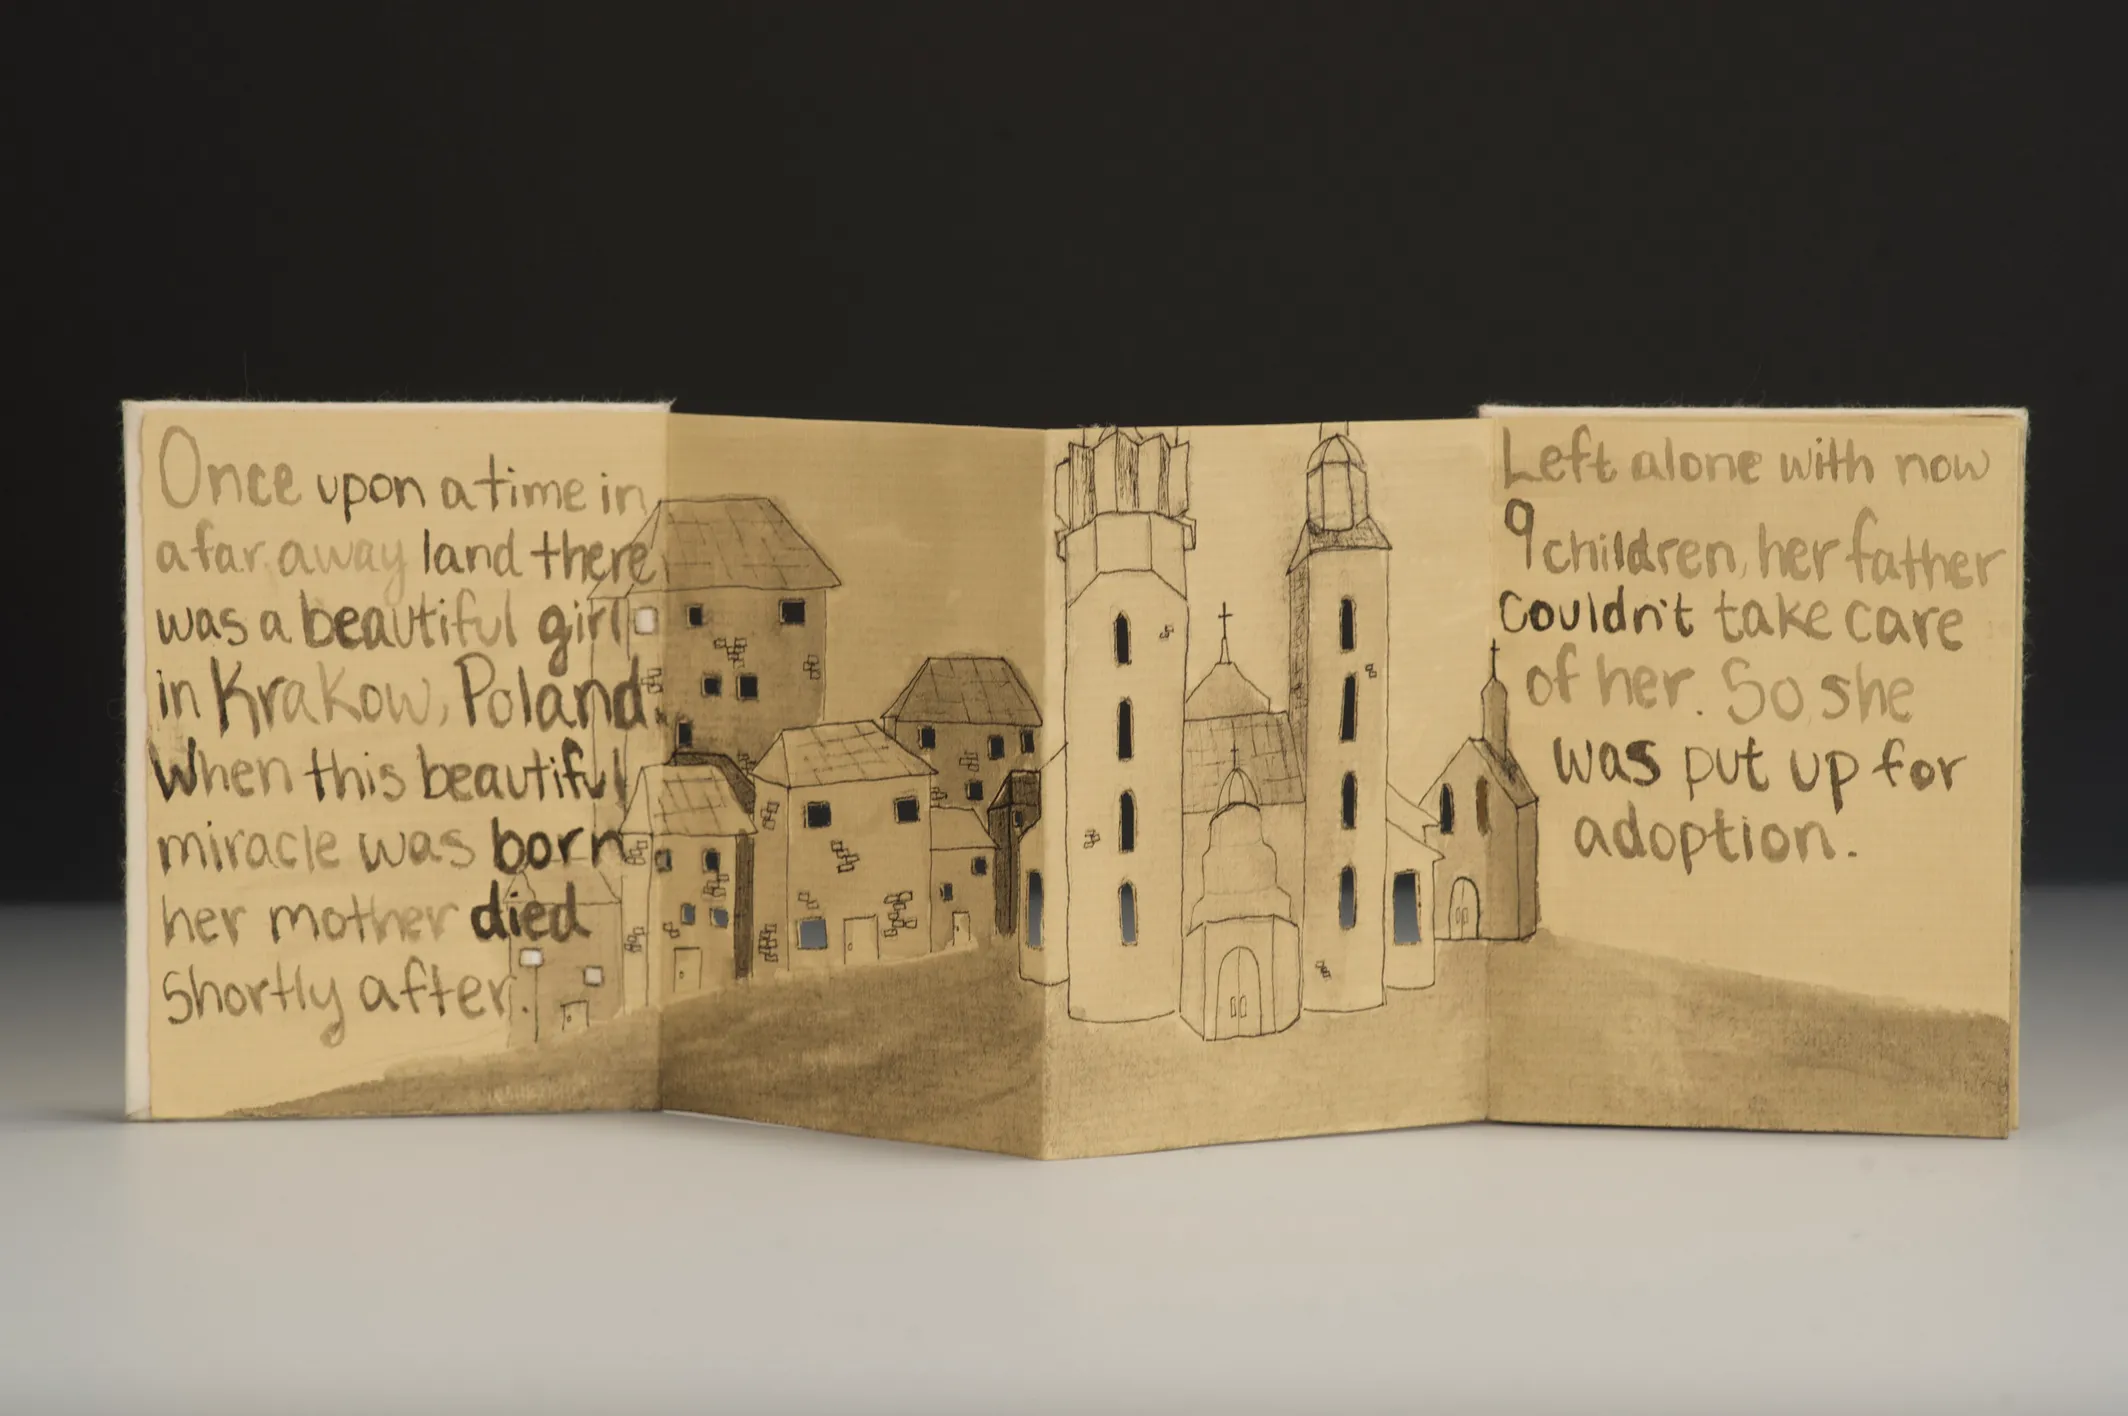 Once upon a time in
a far away land there
was a beautiful girl
in Krakow, Poland.
When this beautiful
miracle was born
her mother died
shortly after.
Left alone with now
9 children, her father
couldn't take care
of her. So, she
was put up for
adoption.